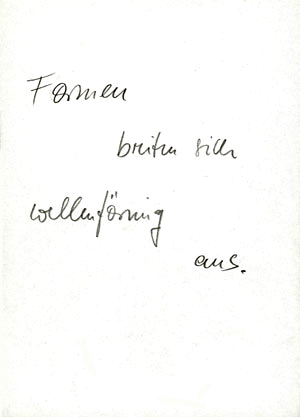 Formen
breiten sich
wellenförmig
aus.